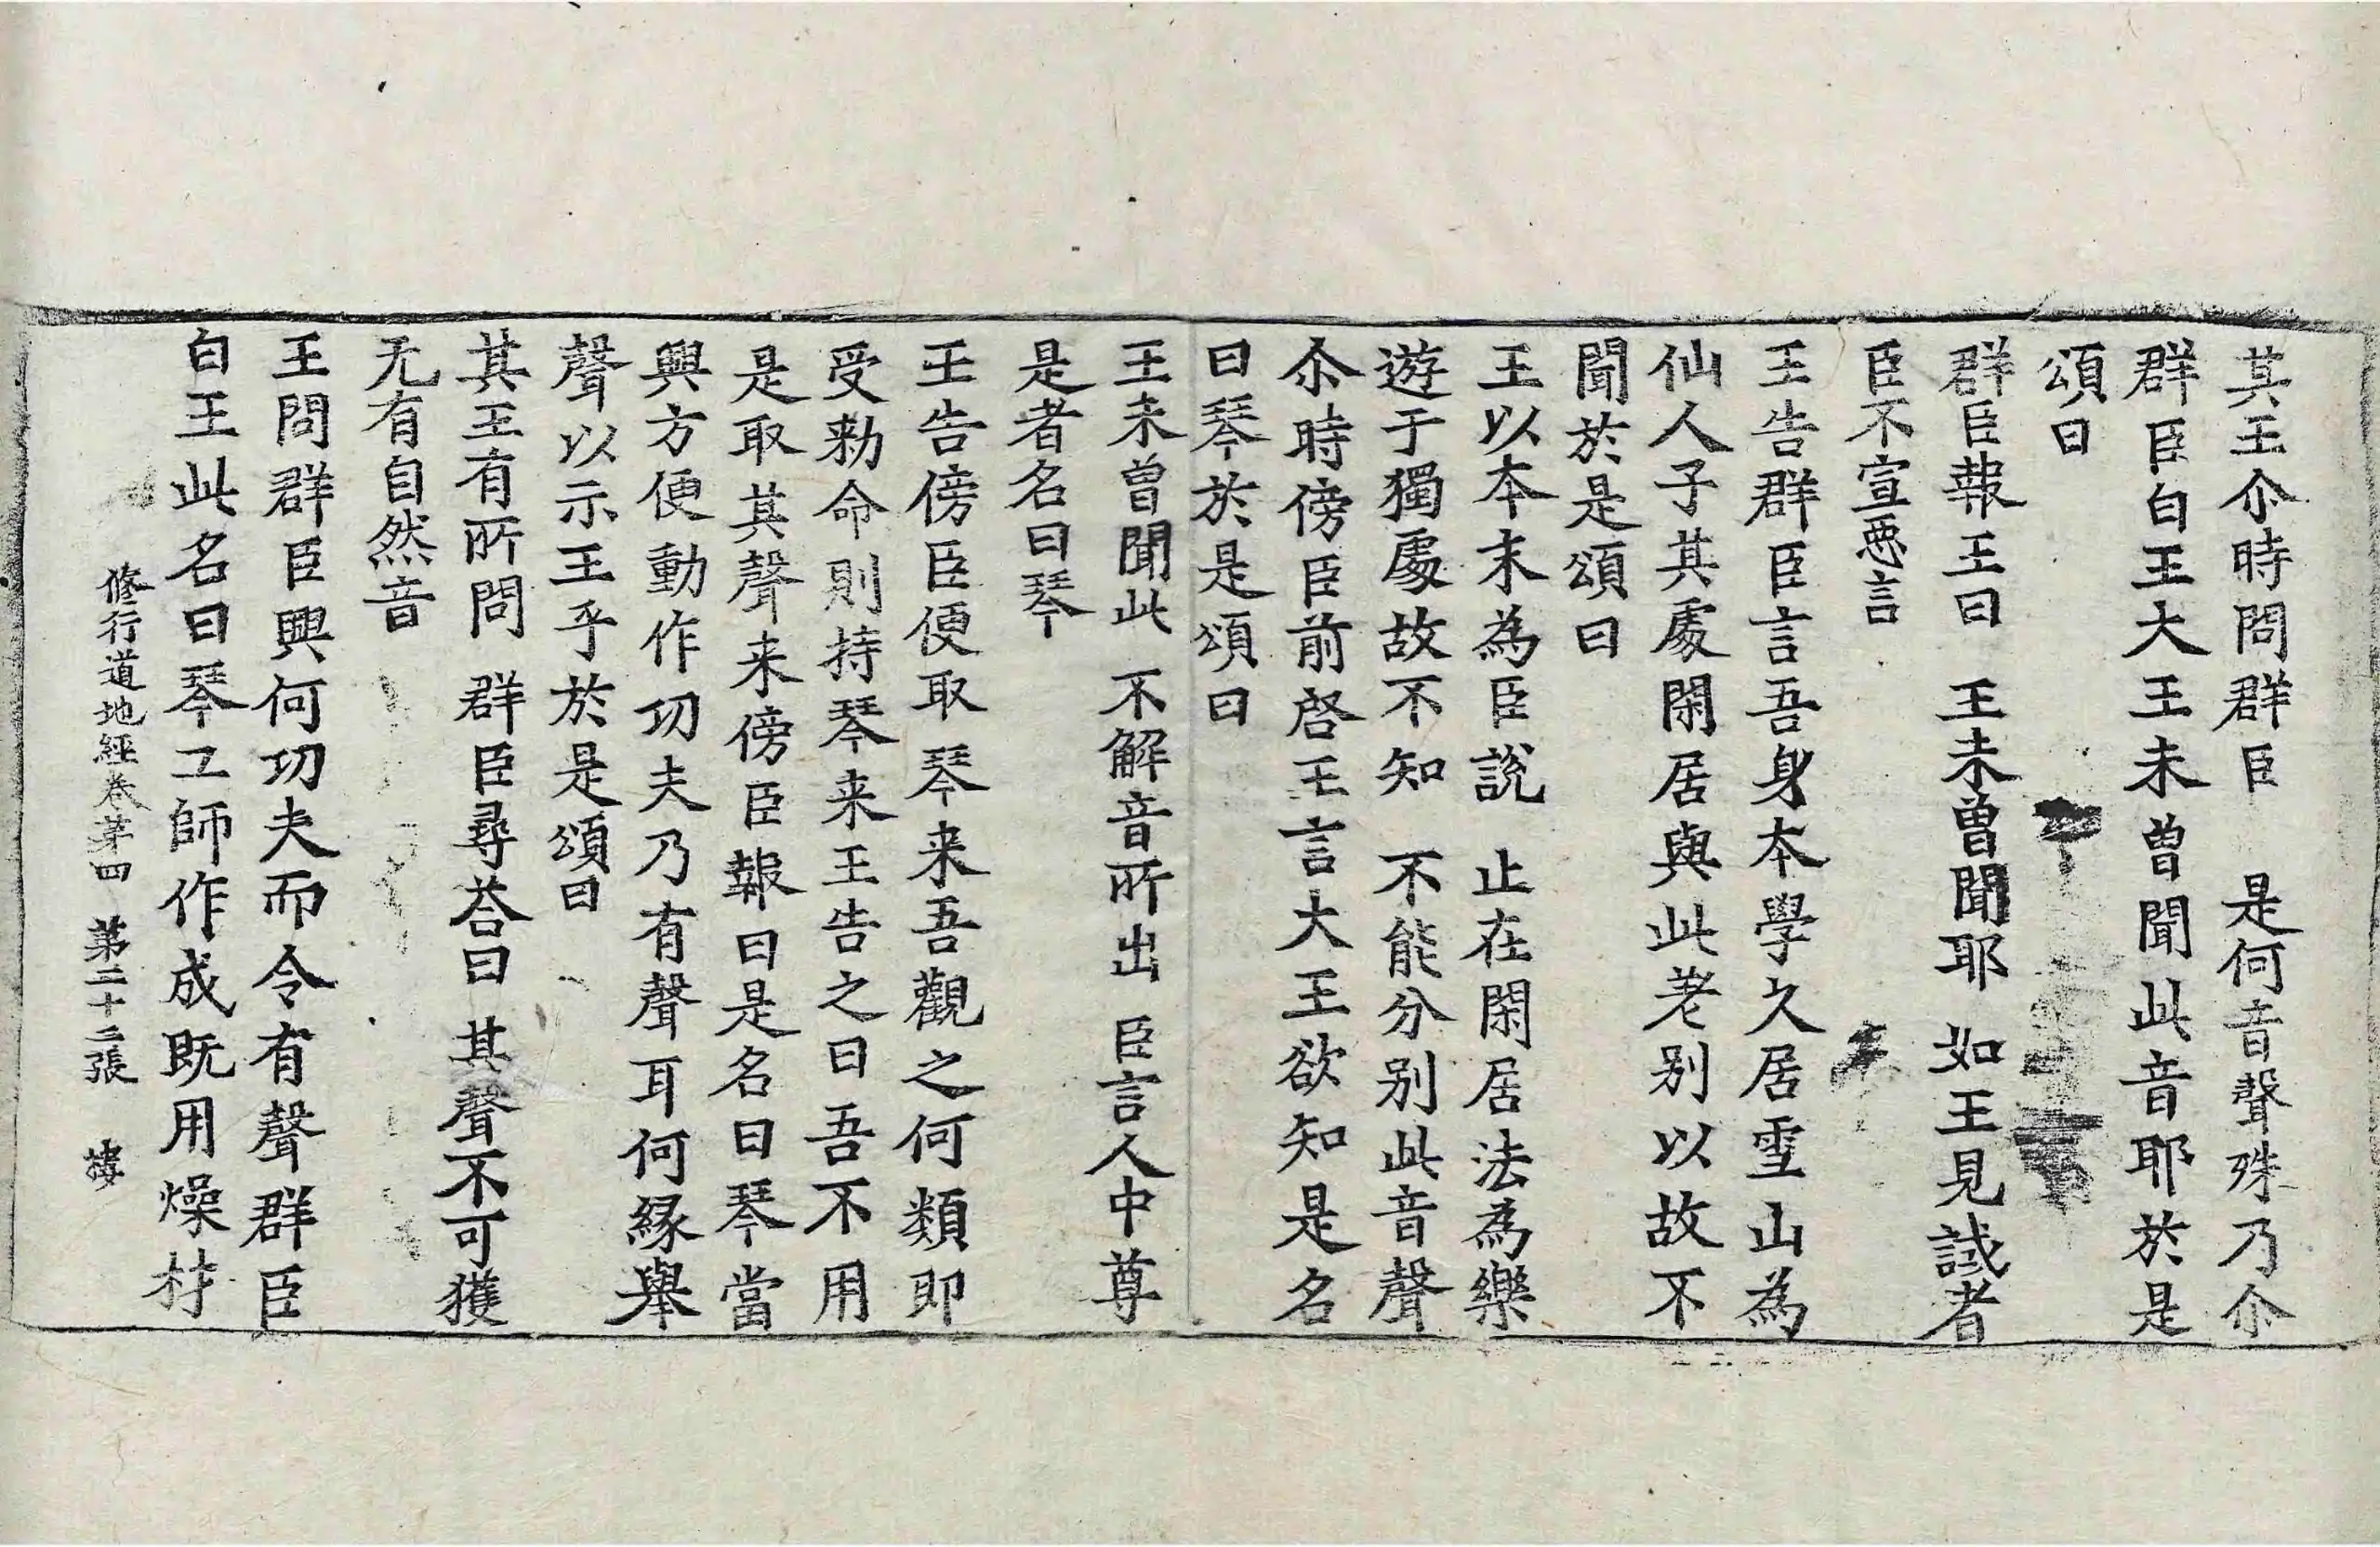 其王尒時問群臣　是何音聲殊乃尒
群臣白王大王未曾聞此音耶於是
頌曰
群臣報王曰　王未曾聞耶　如王見誡者
臣不宣惡言
王告群臣言吾身本學久居雪山為
仙人子其處閑居與此差別以故不
聞於是頌曰
王以本末為臣說　止在閑居法為樂
遊于獨處故不知　不能分別此音聲
尒時傍臣前啓王言大王欲知是名
曰琴於是頌曰
王未曾聞此　不解音所出　臣言人中尊
是者名曰琴
王告傍臣便取琴来吾觀之何類即
受勑命則持琴来王告之曰吾不用
是取其聲来傍臣報曰是名曰琴當
興方便動作功夫乃有聲耳何緣舉
聲以示王乎於是頌曰
其王有所問　群臣尋荅曰　其聲不可獲
无有自然音
王問群臣興何功夫而令有聲群臣
白王此名曰琴工師作成既用燥材
修行道地經卷苐四　苐二十二張　樓